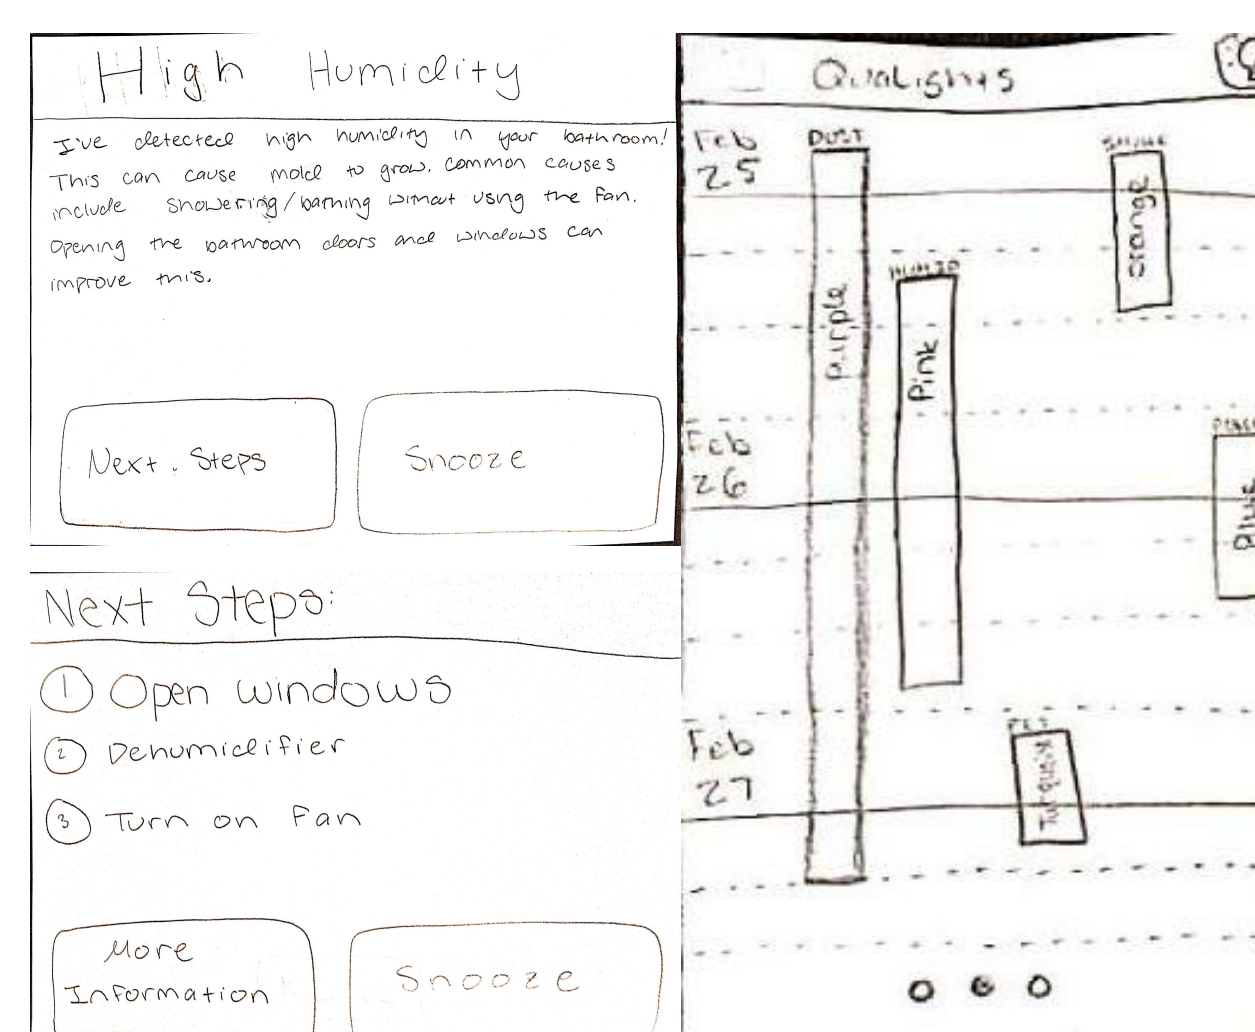 High Humidity
I've detected high humidity in your bathroom!
This can cause mold to grow. Common causes
include showering/bathing without using the fan.
Opening the bathroom doors and windows can
improve this.
Next. Steps
Snooze
Next Steps:
1 Open windows
2 Dehumidifier
3 Turn on Fan
More
Information
Snooze
QuaLights
Feb
25
DUST
purple
HUMID
Pink
orange
Feb
26
Blue
Feb
27
PET
Turquoise